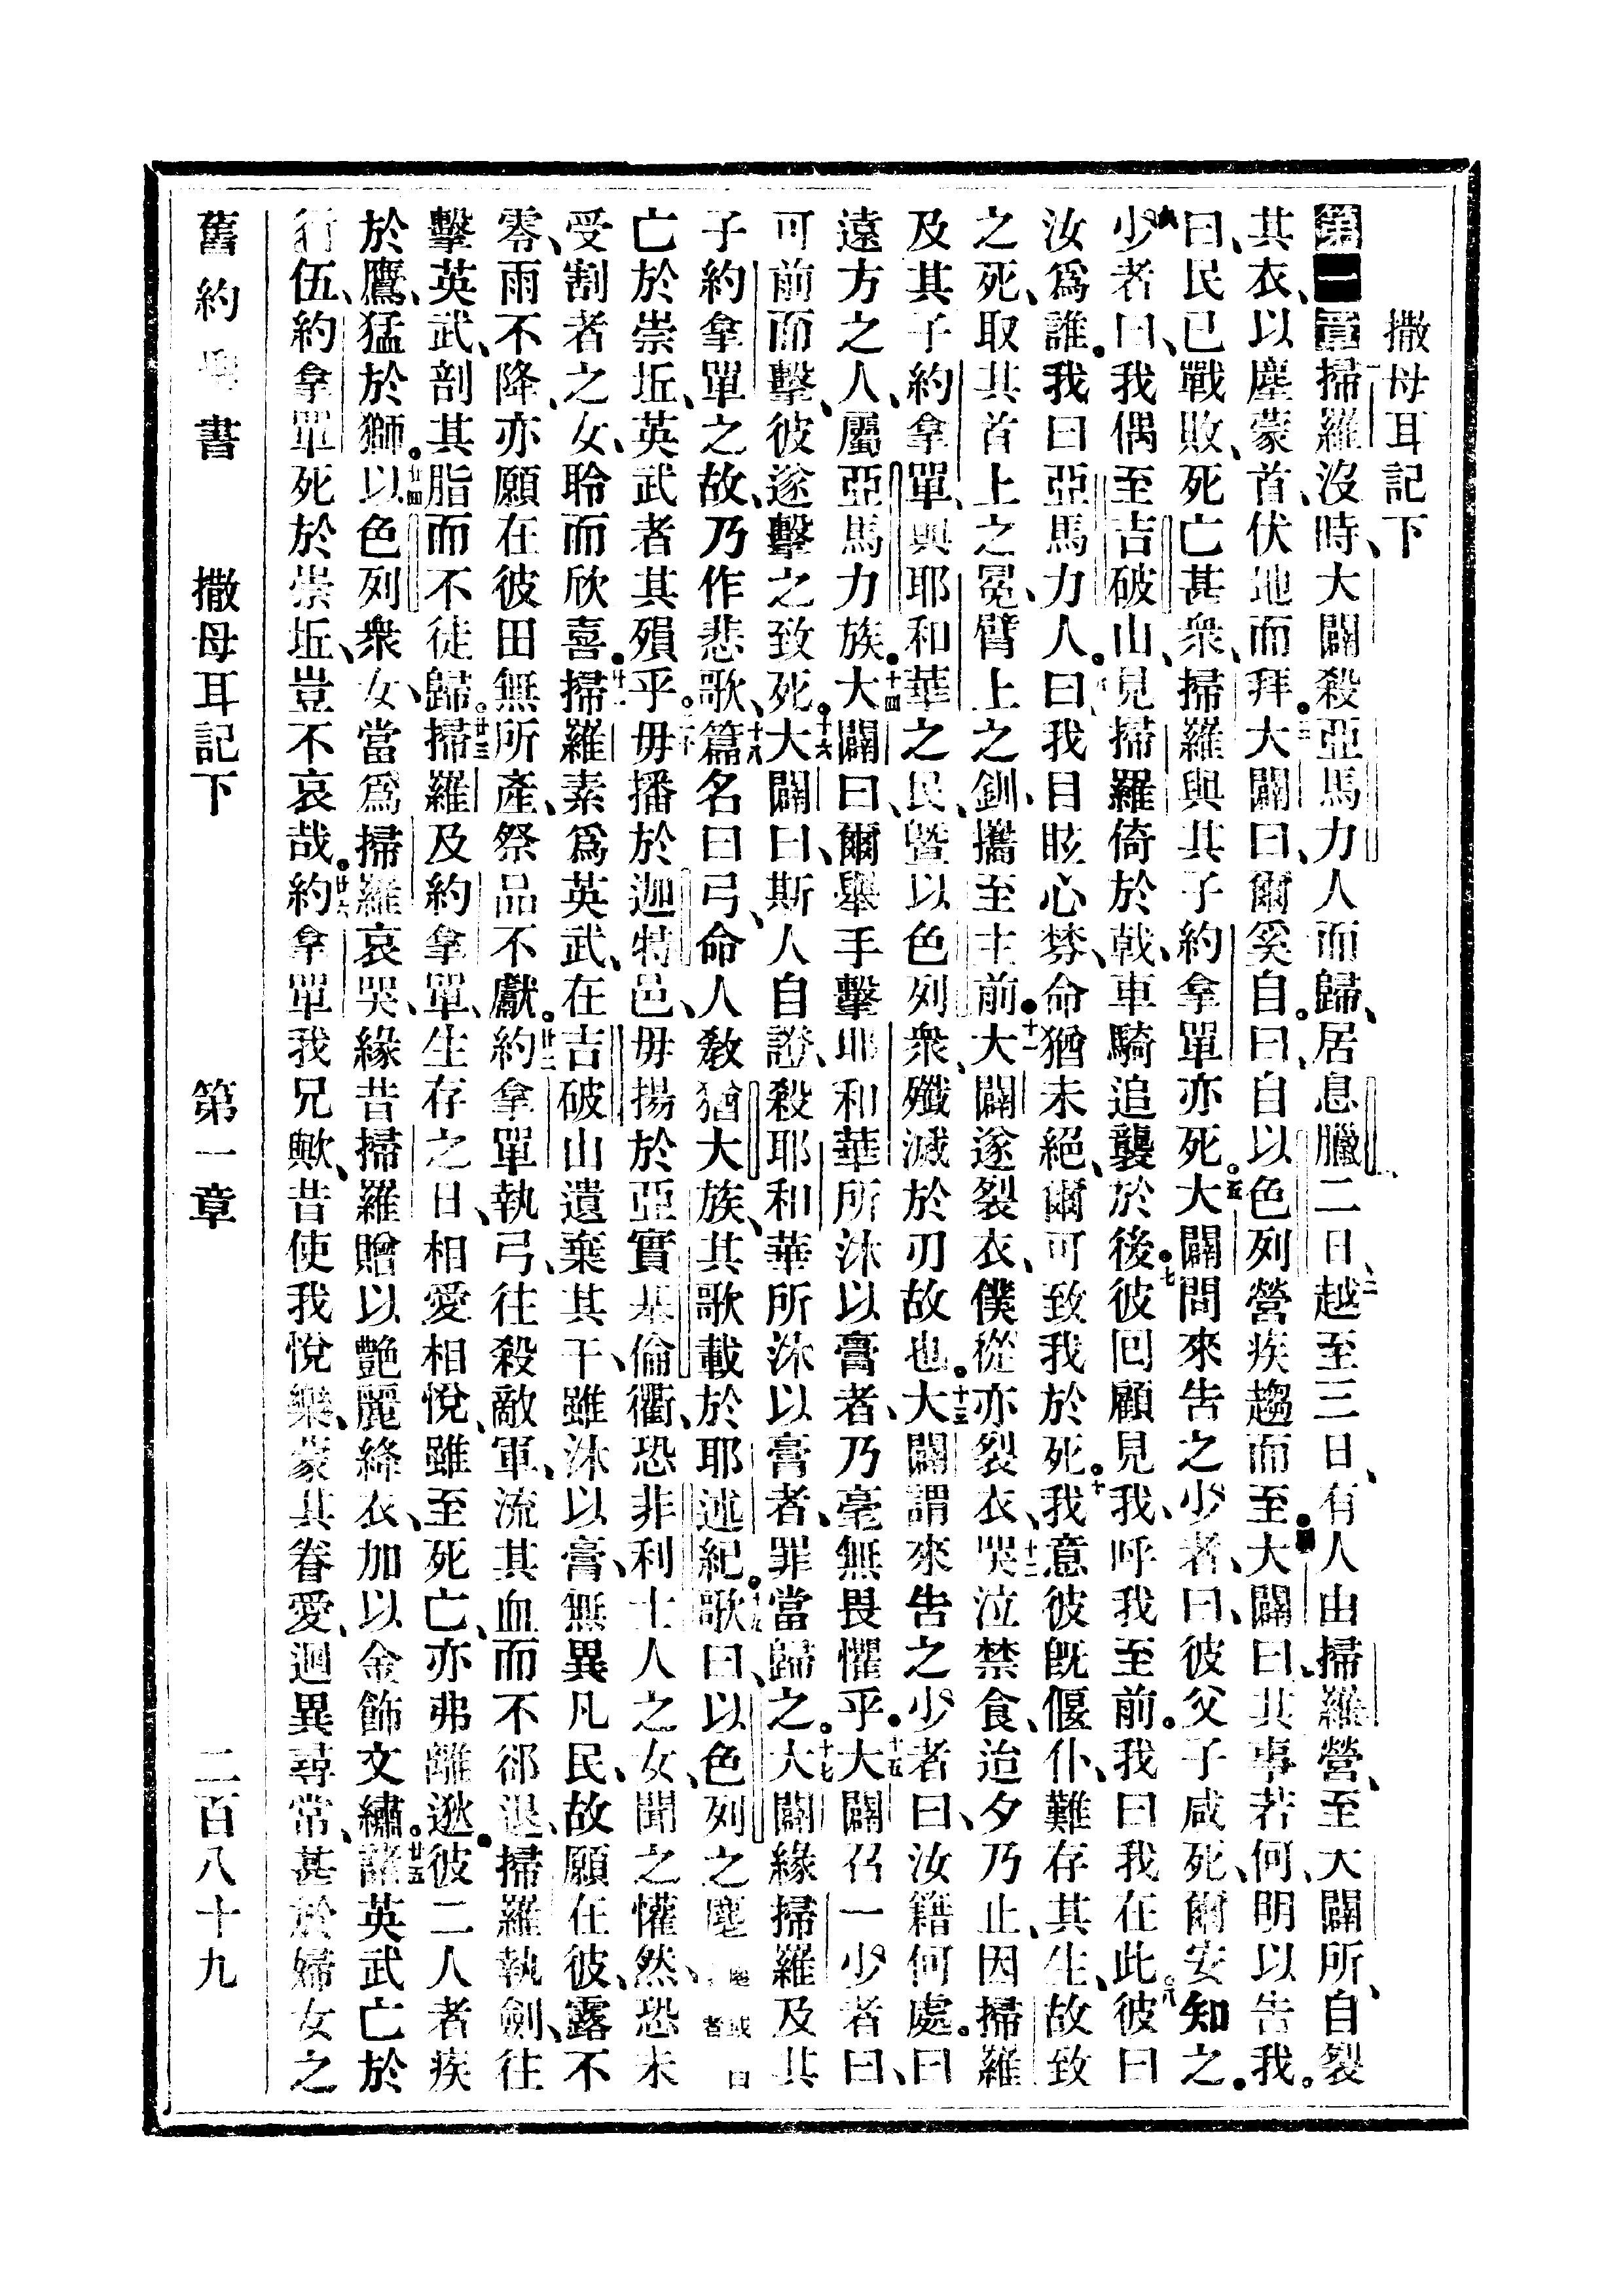 撒母耳記下
第一章掃羅沒時、大闢殺亞馬力人而歸、居息臘二日、二越至三日、有人由掃羅營、至大闢所、自裂
其衣、以塵蒙首、伏地而拜。三大闢曰、爾奚自。曰、自以色列營疾趨而至。四大闢曰、其事若何、明以告我。
曰、民已戰敗、死亡甚衆、掃羅與其子約拿單亦死。五大闢問來告之少者、曰、彼父子咸死、爾安知之。
六少者曰、我偶至吉破山、見掃羅倚於戟、車騎追襲於後。七彼回顧見我、呼我至前。我曰我在此。八彼曰
汝爲誰。我曰亞馬力人。九曰我目眩心棼、命猶未絕、爾可致我於死。十我意彼旣偃仆、難存其生、故致
之死、取其首上之冕、臂上之釧、攜至主前。十一大闢遂裂衣、僕從亦裂衣、十二哭泣禁食、迨夕乃止、因掃羅
及其子約拿單、與耶和華之民、曁以色列衆、殲滅於刃故也。十三大闢謂來告之少者曰、汝籍何處。曰
遠方之人、屬亞馬力族。十四大闢曰、爾舉手擊耶和華所沐以膏者、乃毫無畏懼乎。十五大闢召一少者曰、
可前而擊、彼遂擊之致死。十六大闢曰、斯人自證、殺耶和華所沐以膏者、罪當歸之。十七大闢緣掃羅及其
子約拿單之故、乃作悲歌、十八篇名曰弓、命人敎猶大族、其歌載於耶述紀。十九歌曰、以色列之麀
亡於崇坵、英武者其殞乎。二十毋播於迦特邑、毋揚於亞實基倫衢、恐非利士人之女、聞之懽然、恐未
受割者之女、聆而欣喜。廿一掃羅素爲英武、在吉破山遺棄其干、雖沐以膏、無異凡民、故願在彼、露不
零、雨不降、亦願在彼田無所產、祭品不獻。廿二約拿單執弓、往殺敵軍、流其血而不卻退、掃羅執劍、往
擊英武、剖其脂而不徒歸。廿三掃羅及約拿單、生存之日、相愛相悅、雖至死亡、亦弗離逖。彼二人者疾
於鷹、猛於獅。廿四以色列衆女、當爲掃羅哀哭、緣昔掃羅贈以艷麗絳衣、加以金飾文繡。廿五諸英武亡於
行伍、約拿單死於崇坵、豈不哀哉。廿六約拿單我兄歟、昔使我悅樂、蒙其眷愛、迥異尋常、甚於婦女之
舊約 書　撒母耳記下　第一章　二百八十九